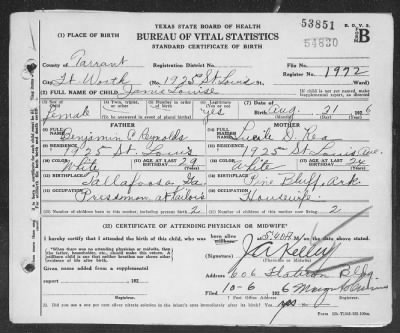 TEXAS STATE BOARD OF HEALTH
53851
B.D.V.S.
(1) PLACE OF BIRTH
BUREAU OF VITAL STATISTICS
54830
B
STANDARD CERTIFICATE OF BIRTH
County of Tarrant Registration District No. File No.
City Ft Worth No. 1925 St Louis St. Register No. 1972 Ward)
(2) FULL NAME OF CHILD Janie Louise
If child is not yet named, make supplemental report, as directed
(3) Sex of Child Female
(4) Twin, triplet, or other?
(5) Number in order of birth
(To be answered in event of plural births)
(6) Legitimate? yes
(7) Date of Birth Aug. 31 1926
FATHER
MOTHER
(8) FULL NAME Benjamin C Reynolds
(14) FULL MAIDEN NAME Lucile D. Rea
(9) RESIDENCE 1925 St. Louis
(15) RESIDENCE 1925 St Louis Ave.
(10) COLOR White (11) AGE AT LAST BIRTHDAY 29 (Years)
(16) COLOR White (17) AGE AT LAST BIRTHDAY 24 (Years)
(12) BIRTHPLACE Tallapoosa, Ga.
(18) BIRTHPLACE Pine Bluff, Ark
(13) OCCUPATION Pressman
(19) OCCUPATION Housewife
(20) Number of children born to this mother, including present birth 2
(21) Number of children of this mother now living 2
(22) CERTIFICATE OF ATTENDING PHYSICIAN OR MIDWIFE*
I hereby certify that I attended the birth of this child, who was born alive at 5:40 A M. on the date above stated.
*When there was no attending physician or midwife, then the father, householder, etc., should make this return.
(Signature) J A Kelley
(Physician or Midwife)
Given name added from a supplemental report
Address 606
Filed 10-6 1926
Registrar.
Registrar.